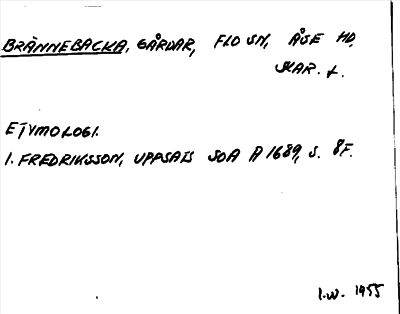 BRÄNNEBACKA, GÅRDAR, FLO SN, ÅSE HD,
SKAR. L.
ETYMOLOGI.
I. FREDRIKSSON, UPPSATS SOA A 1689, S. 8F.
I.W. 1955